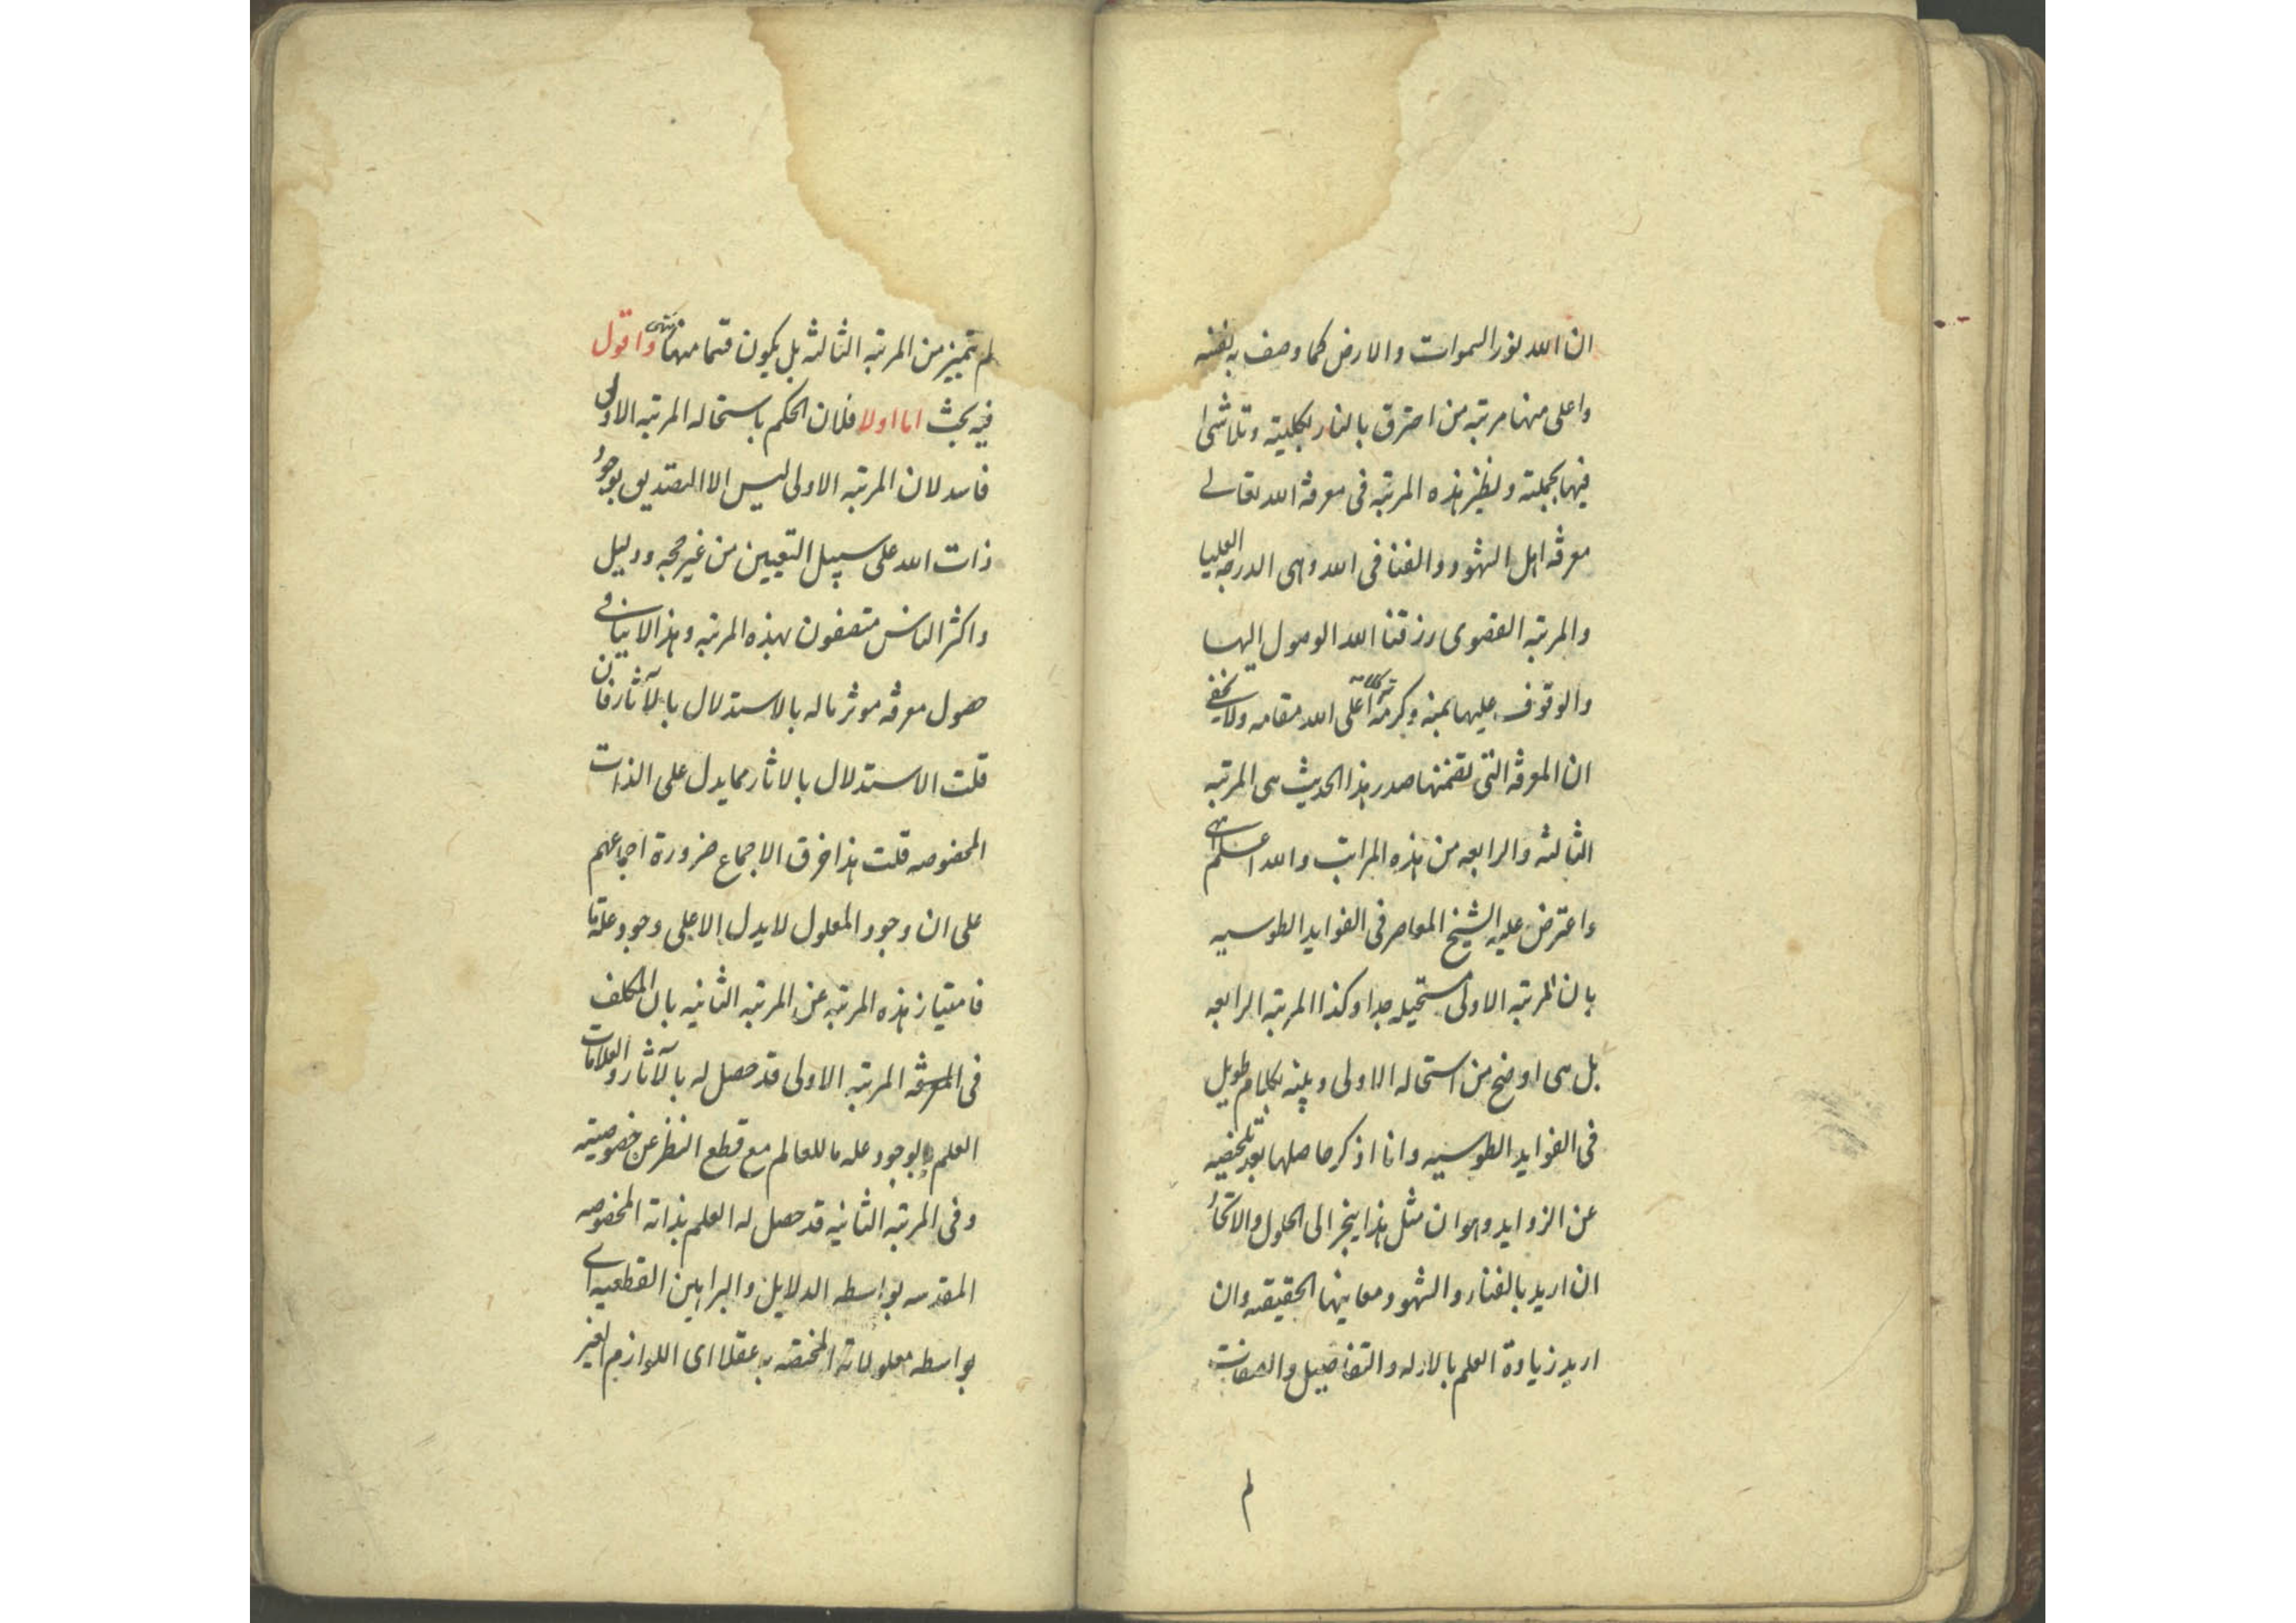 ان الله نور السموات والارض كما وصف به نفسه
واعلى منها مرتبه من احترق بالنار بكليته وتلاشى
فيها بجملته ونظير هذه المرتبه فى معرفة الله تعالى
معرفة اهل الشهود والفنا فى الله وهى الدرجه العليا
والمرتبه القصوى رزقنا الله الوصول اليها
والوقوف عليها بمنه وكرمه اعلى الله مقامه ولا يخفى
ان المعرفة التى تضمنها صدر هذا الحديث هى المرتبه
الثالثه والرابعه من هذه المراتب والله اعلم انتهى
واعترض عليه الشيخ المعاصر فى الفوايد الطوسيه
بان المرتبه الاولى مستحيله جدا وكذا المرتبه الرابعه
بل هى اوضح من استحاله الاولى وبينه بكلام طويل
فى الفوايد الطوسيه وانا اذكر حاصلها بعد تلخيصه
عن الزوايد وهو ان مثل هذا ينجر الى الحلول والاتحاد
ان اريد بالفناء والشهود معانيها الحقيقيه وان
اريد زيادة العلم بالادله والتفاصيل والصفات
لم
لم يتميز من المرتبه الثالثه بل يكون قسما منها انتهى واقول
فيه بحث اما اولا فلان الحكم باستحاله المرتبه الاولى
فاسد لان المرتبه الاولى ليس الا التصديق بوجود
ذات الله على سبيل التعيين من غير حجه ودليل
واكثر الناس متصفون بهذه المرتبه وهذا لا ينافى
حصول معرفة موثر ما له بالاستدلال بالآثار فان
قلت الاستدلال بالاثار مما يدل على الذات
المخصوصه قلت هذا خرق الاجماع ضرورة اجماعهم
على ان وجود المعلول لا يدل الا على وجود علة ما
فامتياز هذه المرتبه عن المرتبه الثانيه بان المكلف
فى المعرفة المرتبه الاولى قد حصل له بالآثار والعلامات
العلم بوجود عله ما للعالم مع قطع النظر عن خصوصيته
وفى المرتبه الثانيه قد حصل له العلم بذاته المخصوصه
المقدسه بواسطه الدلايل والبراهين القطعيه اى
بواسطه معلولاته المختصه به عقلا اى اللوازم الغير